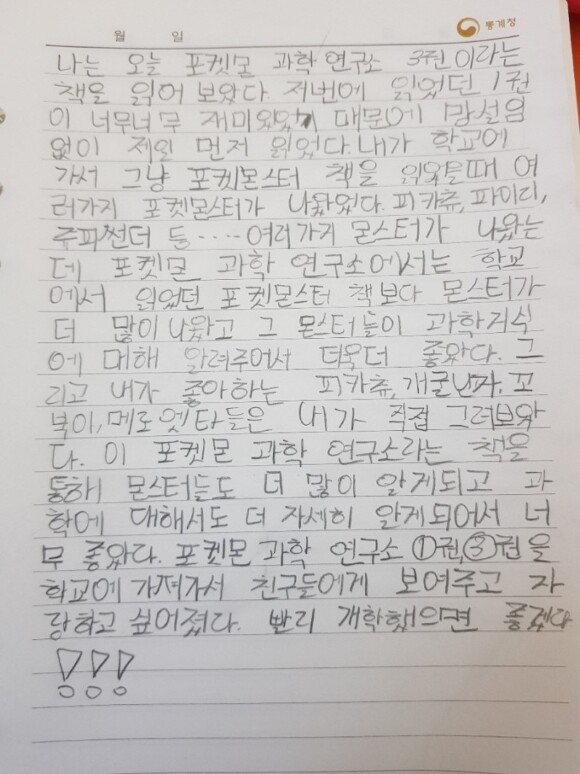 월 일 통계청
나는 오늘 포켓몬 과학 연구소 3권이라는
책을 읽어 보았다. 저번에 읽었던 1권
이 너무너무 재미있었기 때문에 망설임
없이 제일 먼저 읽었다. 내가 학교에
가서 그냥 포케몬스터 책을 읽었을때 여
러가지 포켓몬스터가 나왔었다. 피카츄, 파이리,
쥬피썬더 등····· 여러가지 몬스터가 나왔는
데 포켓몬 과학 연구소에서는 학교
에서 읽었던 포켓몬스터 책보다 몬스터가
더 많이 나왔고 그 몬스터들이 과학지식
에 대해 알려주어서 더욱더 좋았다. 그
리고 내가 좋아하는 피카츄, 개굴닌자, 꼬
북이, 메로엣타들은 내가 직접 그려보았
다. 이 포켓몬 과학 연구소라는 책을
통해 몬스터들도 더 많이 알게되고 과
학에 대해서도 더 자세히 알게되어서 너
무 좋았다. 포켓몬 과학 연구소 ①권,③권을
학교에 가져가서 친구들에게 보여주고 자
랑하고 싶어졌다. 빨리 개학했으면 좋겠다
!!!